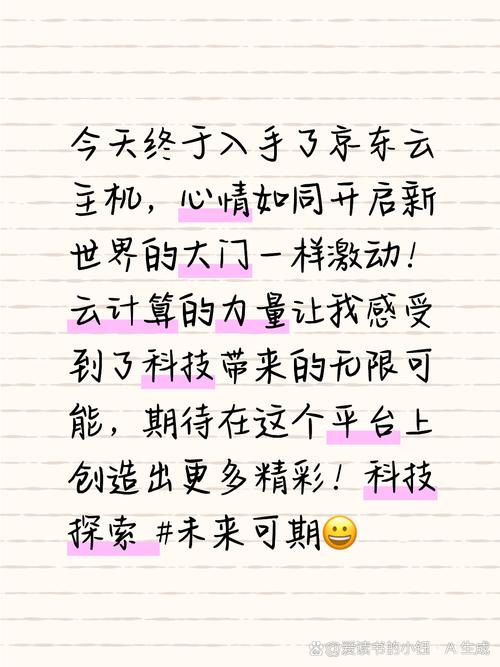 今天终于入手了京东云
主机，心情如同开启新
世界的大门一样激动！
云计算的力量让我感受
到了科技带来的无限可
能，期待在这个平台上
创造出更多精彩！科技
探索 #未来可期😀
@爱读书的小钰 · A 生成